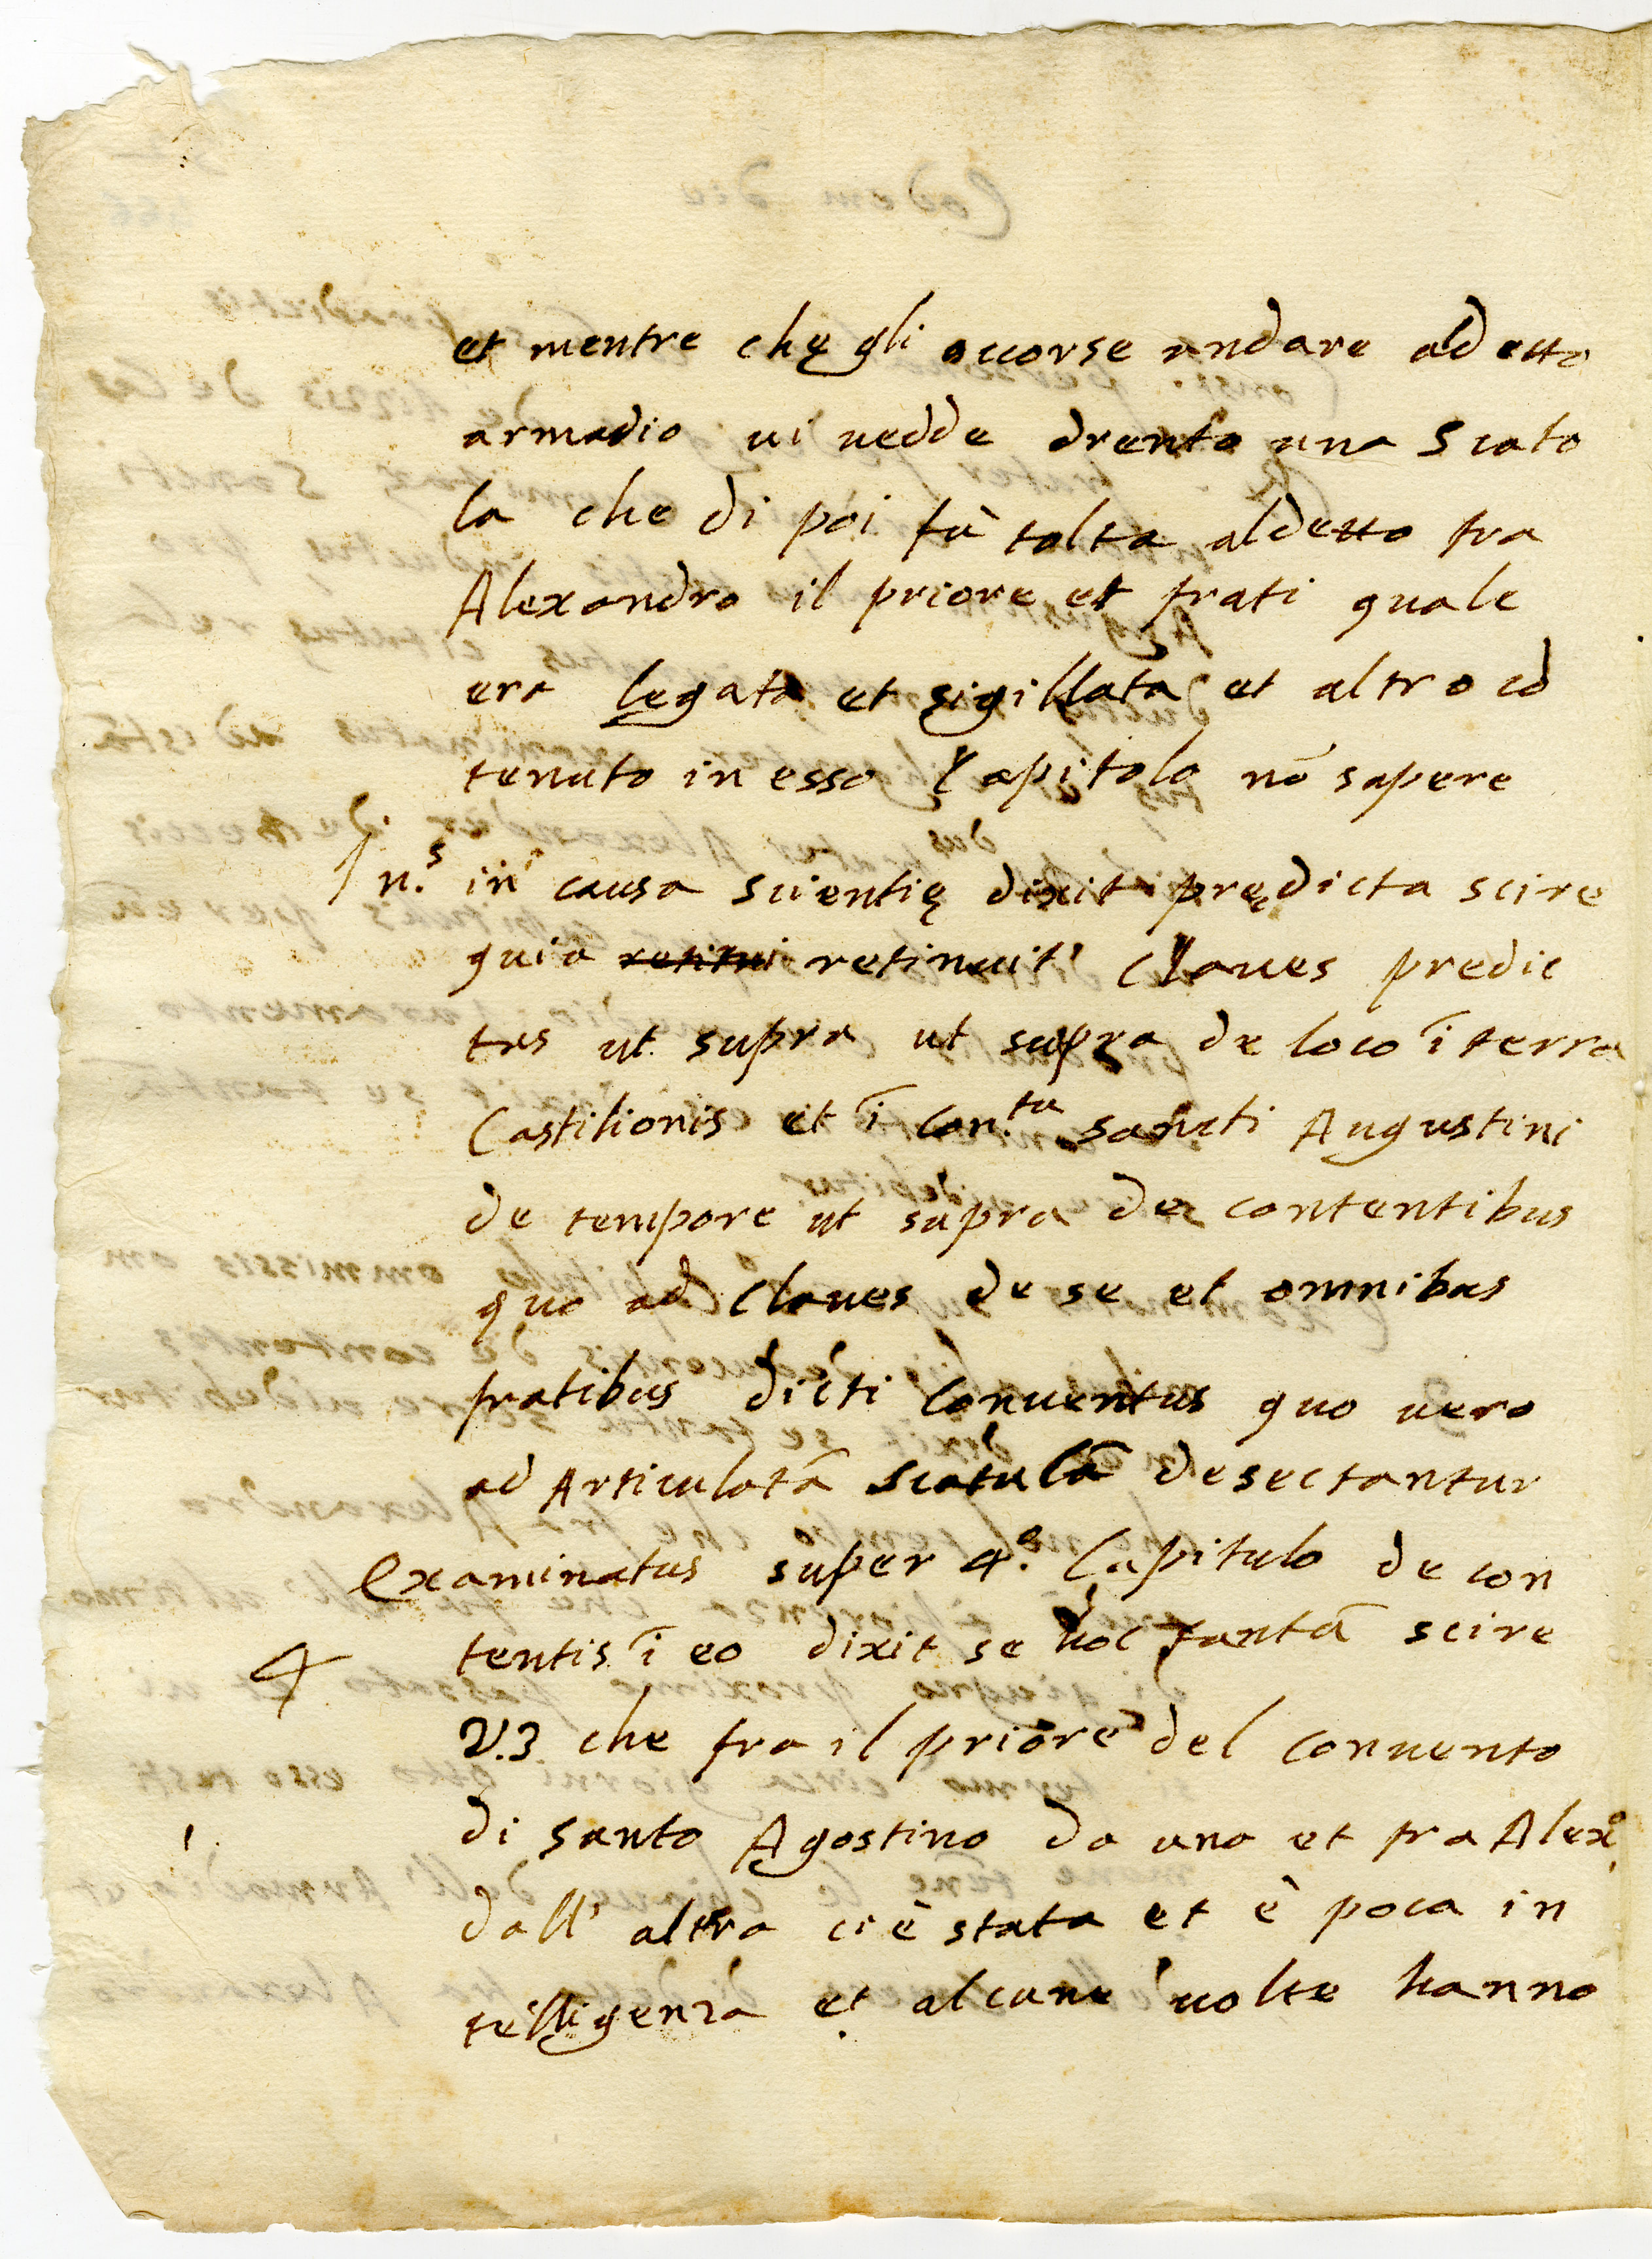 et mentre chę gli occorse andare aldetto
armadio ui uedde drento una scato
la che di poi fù tolta aldetto fra
Alexandro il priore et frati quale
era legata et sigillata et altro cō
tenuto in esso Capitolo nō sapere
In.s in causa scientię dixit prędicta scire
quia retinui retinuit claues predic
tas ut supra ut supra de loco ī terra
Castilionis et ī con.tu sancti Augustini
de tempore ut supra de contentibus
quo ad claues de se et omnibus
fratibus dicti conuentus quo uero
ad Articulatā scatulā desectantur
Examinatus super 4.o Capitulo de con
4 tentis ī eo dixit se hoc tantū scire
V.3 che fra il priore del conuento
di santo Agostino da una et fra Alex.o
dall' altra ci è stata et è poca in
telligenza et alcune uolte hanno